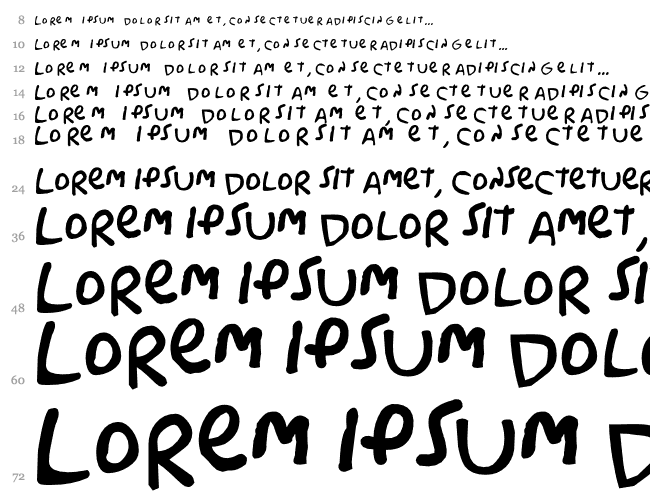 8 Lorem ipsum dolor sit amet, consectetuer adipiscing elit...
10 Lorem ipsum dolor sit amet, consectetuer adipiscing elit...
12 Lorem ipsum dolor sit amet, consectetuer adipiscing elit...
14 Lorem ipsum dolor sit amet, consectetuer adipiscing
16 Lorem ipsum dolor sit amet, consectetuer adipis
18 Lorem ipsum dolor sit amet, consectetue
24 Lorem ipsum dolor sit amet, consectetuer
36 Lorem ipsum dolor sit amet,
48 Lorem ipsum dolor si
60 Lorem ipsum dolo
72 Lorem ipsum D